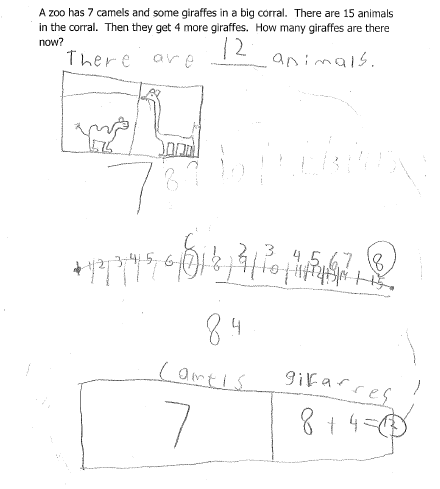 A zoo has 7 camels and some giraffes in a big corral. There are 15 animals
in the corral. Then they get 4 more giraffes. How many giraffes are there
now?
There are 12 animals.
7 8 9 10
C 1 2 3 4 5 6 7 8
1 2 3 4 5 6 7 8 9 10 11 12 13 14 15
8 4
Camels
7 8 + 4 = 12